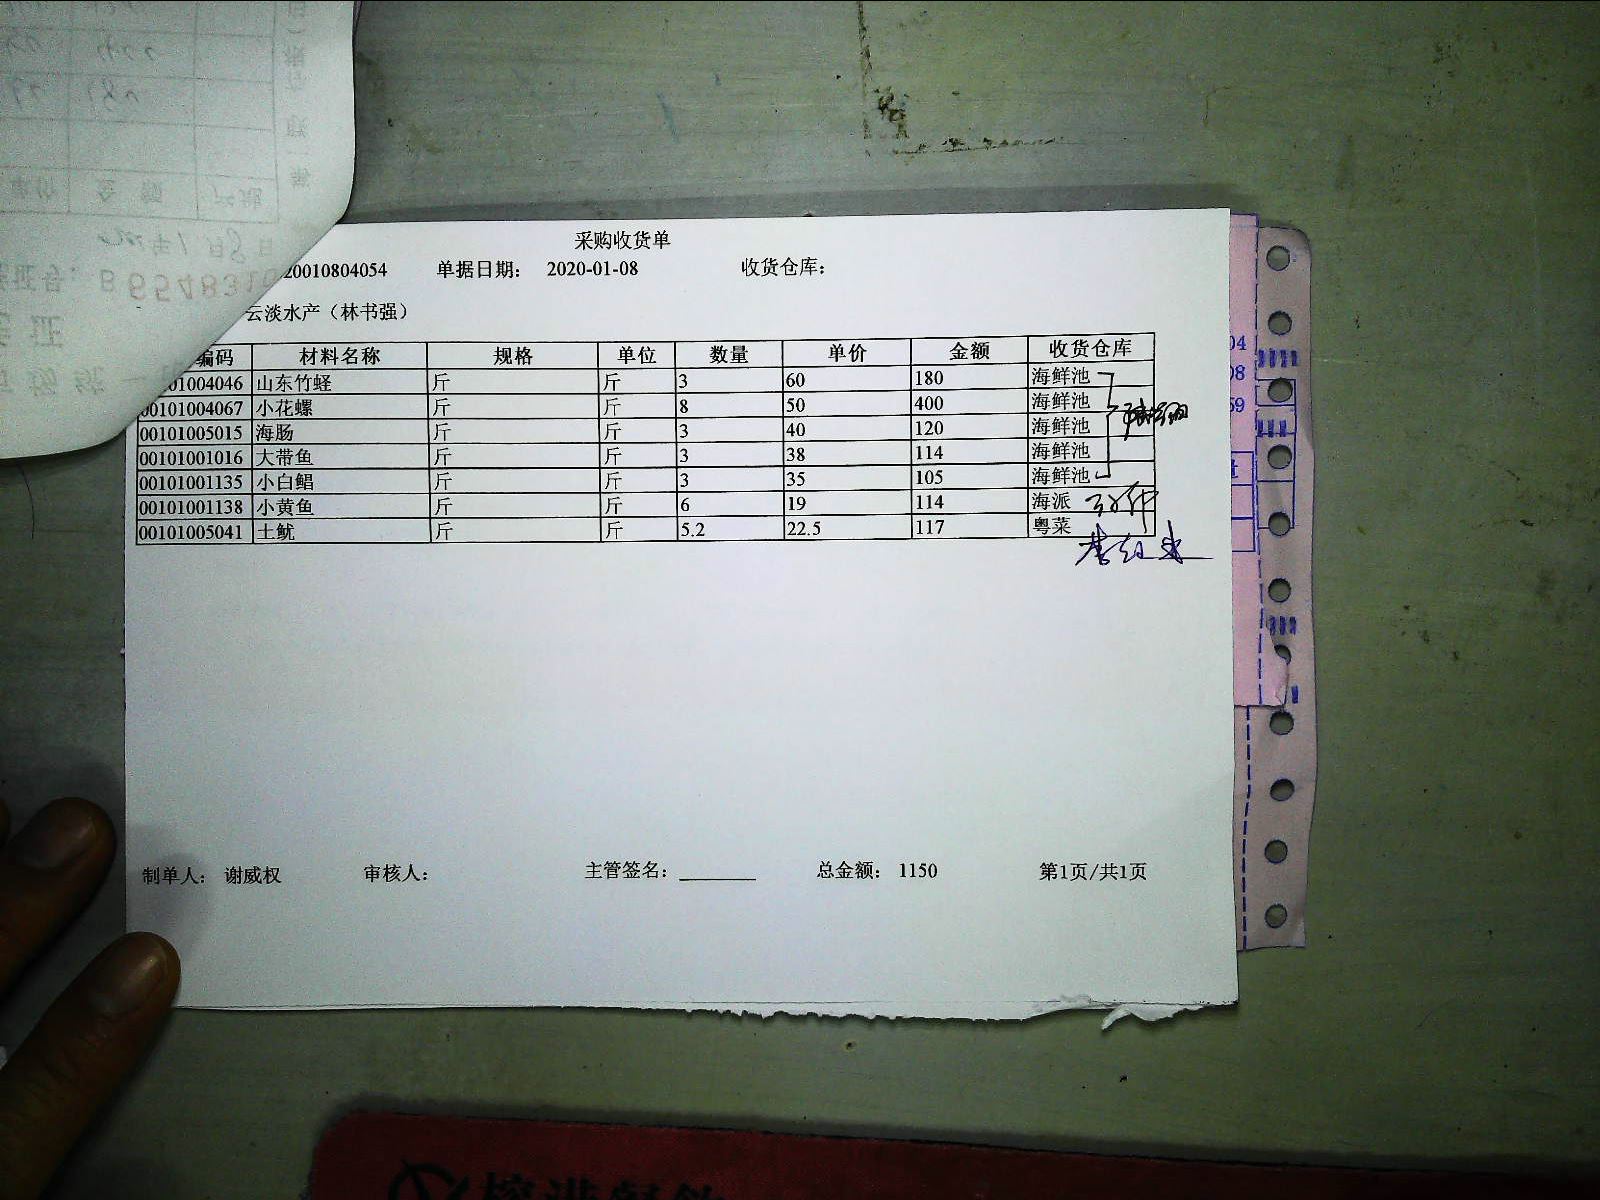 采购收货单
20010804054 单据日期： 2020-01-08 收货仓库：
云淡水产（林书强）
编码 材料名称 规格 单位 数量 单价 金额 收货仓库
01004046 山东竹蛏 斤 斤 3 60 180 海鲜池
00101004067 小花螺 斤 斤 8 50 400 海鲜池
00101005015 海肠 斤 斤 3 40 120 海鲜池
00101001016 大带鱼 斤 斤 3 38 114 海鲜池
00101001135 小白鲳 斤 斤 3 35 105 海鲜池
00101001138 小黄鱼 斤 斤 6 19 114 海派
00101005041 土鱿 斤 斤 5.2 22.5 117 粤菜
制单人： 谢威权 审核人： 主管签名： 总金额： 1150 第1页/共1页